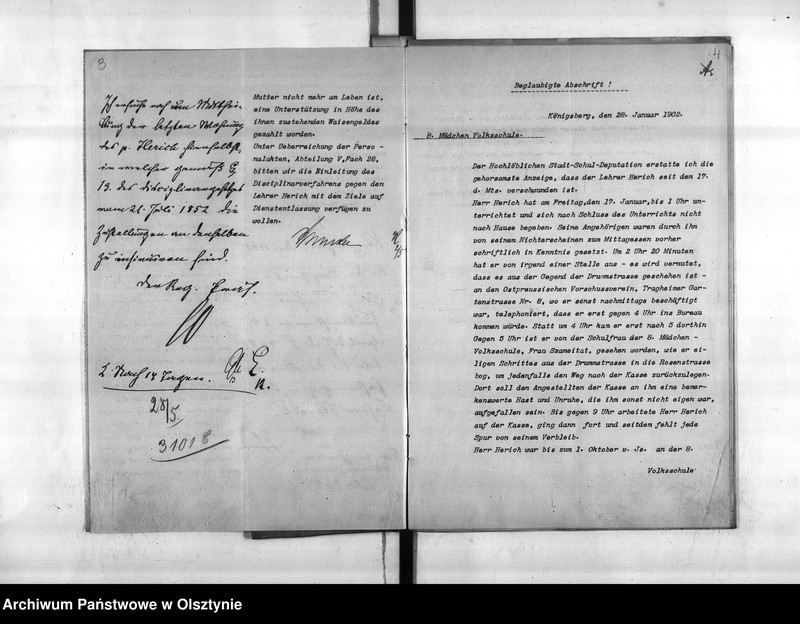 3
Ihenhufe nach um Mitthei-
lung der letzten Wohnung
des p. Herich
in welcher gemäß §
13. des Disciplinargesetzes
vom 21. Juli 1852 die
Zustellungen an denselben
zu insinuiren sind.
Der Reg. Präs.
2. Nach 14 Tagen.
28/5.
3101 6
Mutter nicht mehr am Leben ist,
eine Unterstützung in Höhe des
ihnen zustehenden Waisengeldes
gezahlt worden.
Unter Ueberreichung der Perso -
nalakten, Abteilung V, Fach 28,
bitten wir die Einleitung des
Disciplinarverfahrens gegen den
Lehrer Herich mit dem Ziele auf
Dienstentlassung verfügen zu
wollen.
4
Beglaubigte Abschrift !
Königsberg, den 28. Januar 1902.
8. Mädchen Volksschule.
Der Hochlöblichen Stadt-Schul-Deputation erstatte ich die
gehorsamste Anzeige, dass der Lehrer Herich seit dem 17.
d. Mts. verschwunden ist.
Herr Herich hat am Freitag, den 17. Januar, bis 1 Uhr un-
terrichtet und sich nach Schluss des Unterrichts nicht
nach Hause begeben. Seine Angehörigen waren durch ihn
von seinem Nichterscheinen zum Mittagessen vorher
schriftlich in Kenntnis gesetzt. Um 2 Uhr 20 Minuten
hat er von irgend einer Stelle aus - es wird vermutet,
dass es aus der Gegend der Drummstrasse geschehen ist -
an den Ostpreussischen Vorschussverein, Tragheimer Gar-
tenstrasse Nr. 8, wo er sonst nachmittags beschäftigt
war, telephoniert, dass er erst gegen 4 Uhr ins Bureau
kommen würde. Statt um 4 Uhr kam er erst nach 5 dorthin
Gegen 5 Uhr ist er von der Schulfrau der 8. Mädchen -
Volksschule, Frau Szameitat, gesehen worden, wie er ei-
ligen Schrittes aus der Drummstrasse in die Rosenstrasse
bog, um jedenfalls den Weg nach der Kasse zurückzulegen.
Dort soll den Angestellten der Kasse an ihm eine bemer-
kenswerte Hast und Unruhe, die ihm sonst nicht eigen war,
aufgefallen sein. Bis gegen 9 Uhr arbeitete Herr Herich
auf der Kasse, ging dann fort und seitdem fehlt jede
Spur von seinem Verbleib.
Herr Herich war bis zum 1. Oktober v. Js. an der 8.
Volksschule
Archiwum Państwowe w Olsztynie